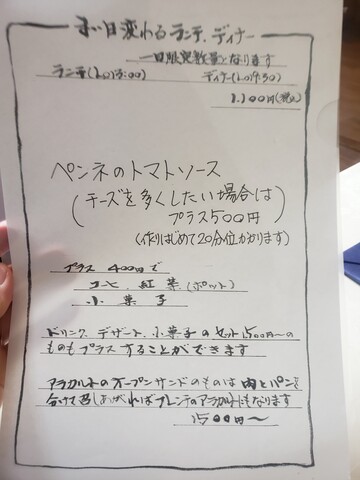 日変わるランチ、ディナー
一日限定数量となります
ランチ(L.o13:00) ディナー(L.o19:30)
1.100円(税込)
ペンネのトマトソース
(チーズを多くしたい場合は
プラス500円)
(作りはじめて20分位かかります)
プラス 400円で
コーヒー 紅茶(ポット)
小菓子
ドリンク デザート、小菓子のセット1500円〜の
ものもプラスすることができます
アラカルトのオープンサンドのものは肉とパンを
分けて召しあがればフレンチのアラカルトにもなります
1500円〜